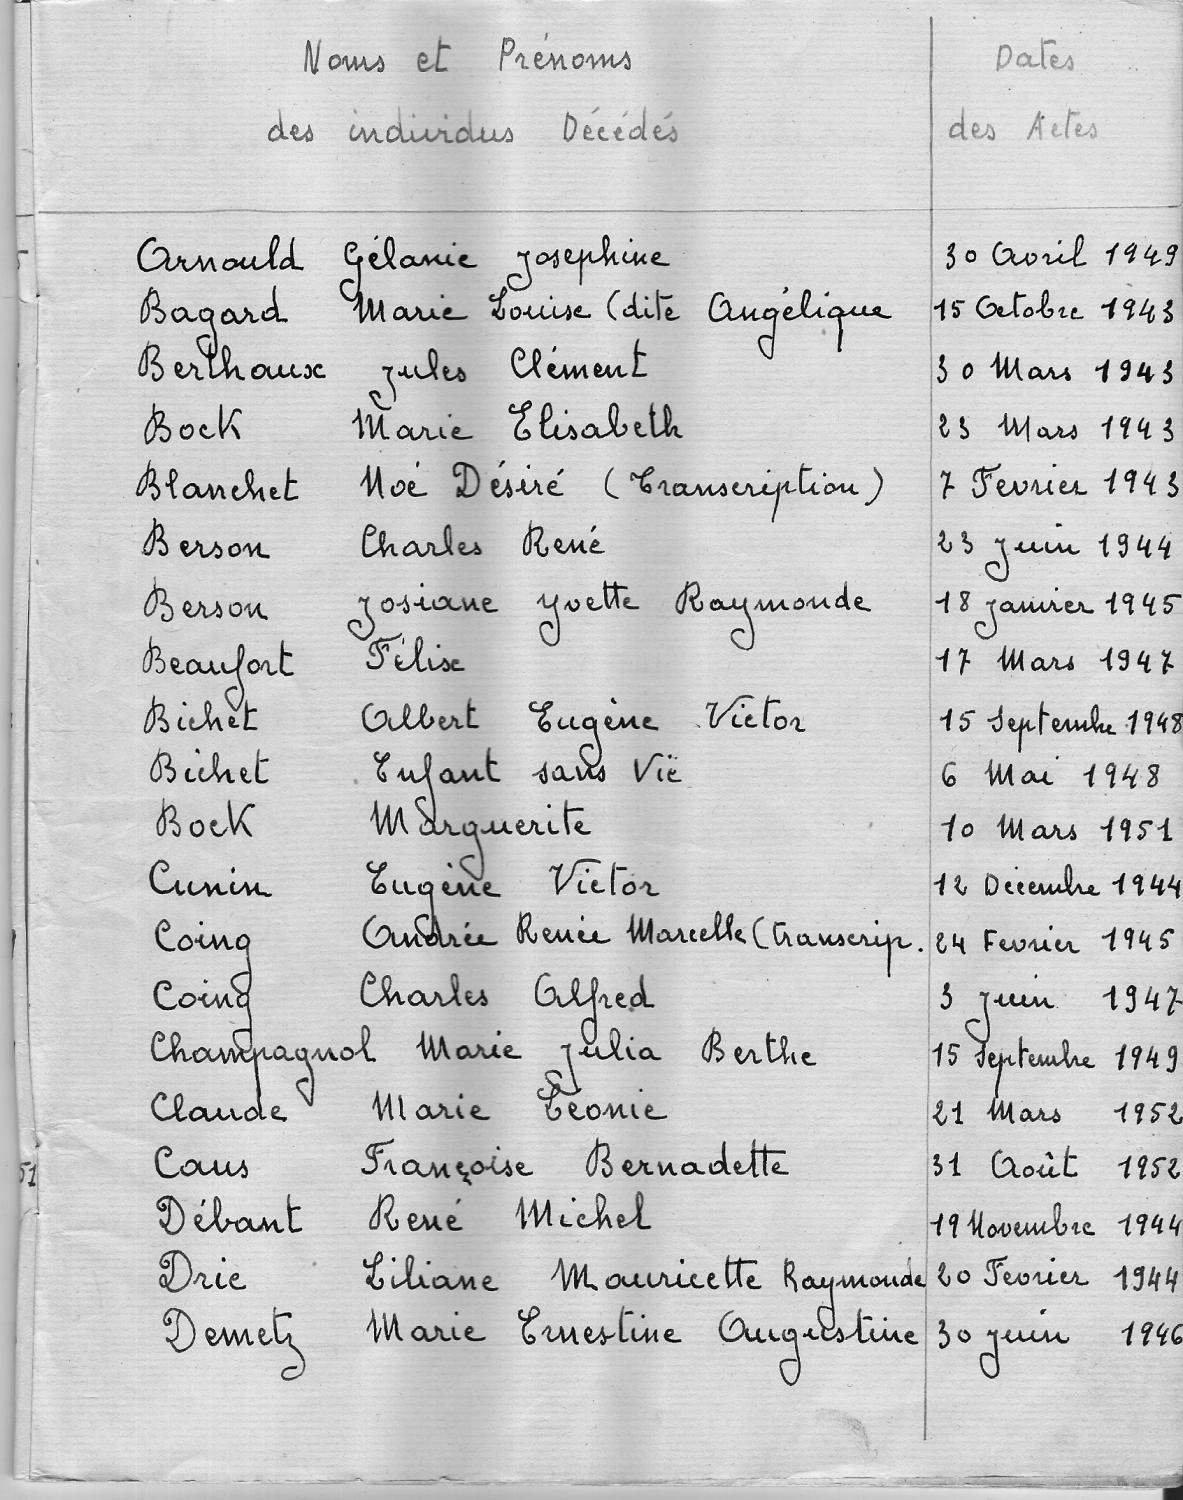 Noms et Prénoms Dates
des individus Décédés des Actes
Arnould Gélanie Josephine 30 Avril 1949
Bagard Marie Louise (dite Angélique 15 Octobre 1943
Berthaux Jules Clément 30 Mars 1943
Bock Marie Elisabeth 23 Mars 1943
Blanchet Noé Désiré (Transcription) 7 Fevrier 1943
Berson Charles René 23 Juin 1944
Berson Josiane Yvette Raymonde 18 Janvier 1945
Beaufort Félix 17 Mars 1947
Bichet Albert Eugène Victor 15 Septembre 1948
Bichet Enfant sans Vie 6 Mai 1948
Bock Marguerite 10 Mars 1951
Cunin Eugène Victor 12 Décembre 1944
Coing Andrée Renée Marcelle (transcrip. 24 Fevrier 1945
Coing Charles Alfred 3 Juin 1947
Champagnol Marie Julia Berthe 15 Septembre 1949
Claude Marie Léonie 21 Mars 1952
51 Caus Françoise Bernadette 31 Août 1952
Débant René Michel 19 Novembre 1944
Drie Liliane Mauricette Raymonde 20 Fevrier 1944
Demetz Marie Ernestine Augustine 30 Juin 1946